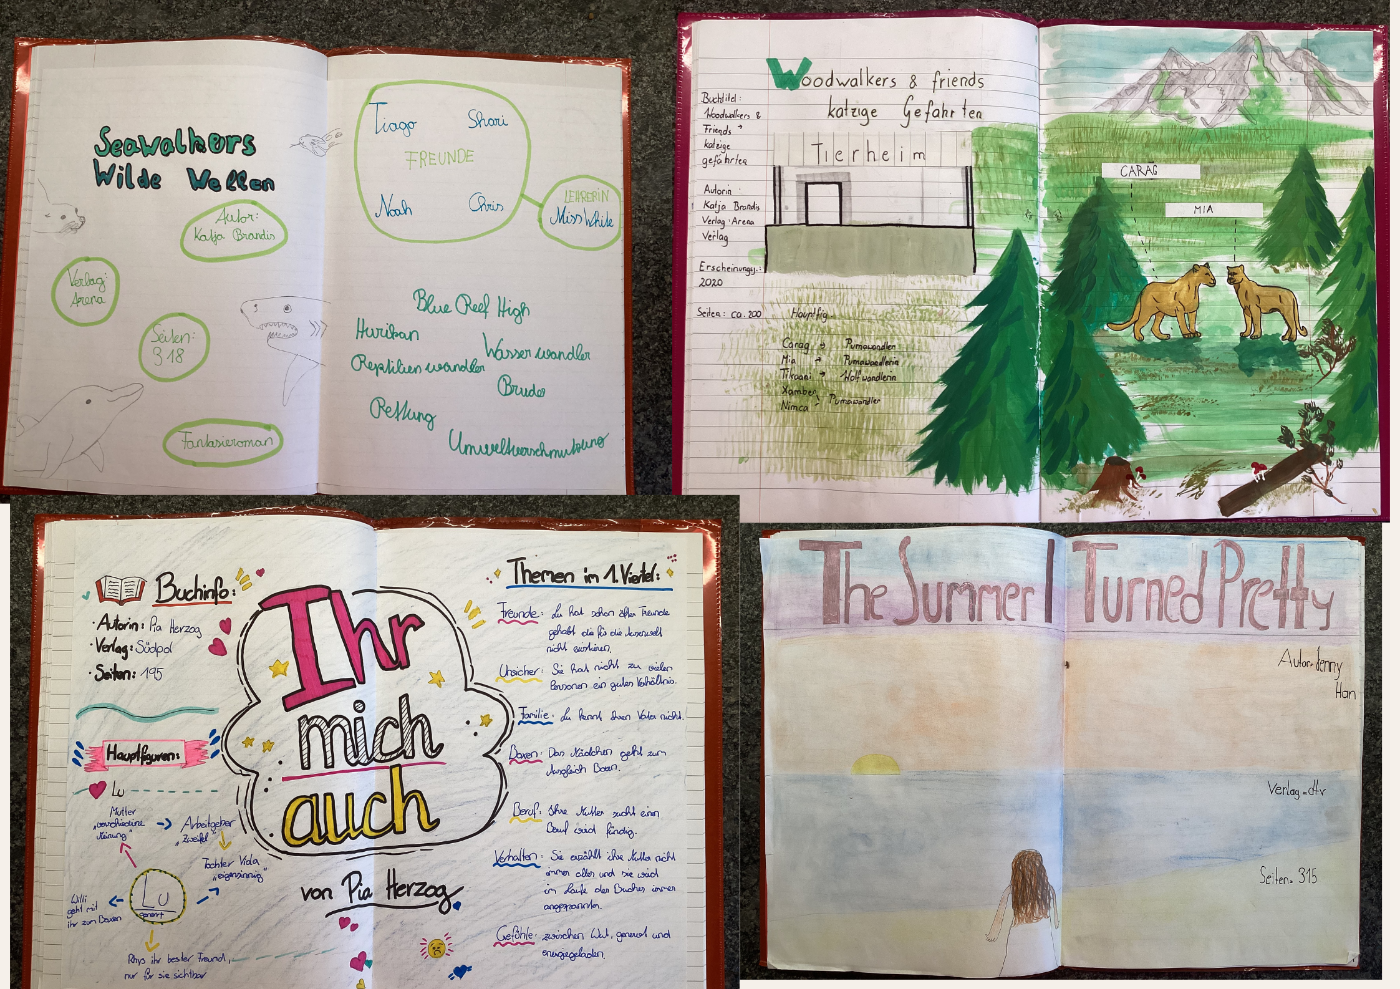 Seawalkers
Wilde Wellen
Autor:
Katja Brandis
Verlag:
Arena
Seiten:
318
Fantasieroman
Tiago Shari
FREUNDE
Noah Chris
LEHRERIN
Miss White
Blue Reef High
Hurikan
Wasserwandler
Reptilienwandler
Brudes
Rettung
Umweltverschmutzung
Woodwalkers & friends
katzige Gefährten
Tierheim
Buchtitel:
Woodwalkers &
Friends
katzige
gefährten
Autorin:
Katja Brandis
Verlag: Arena
Verlag
Erscheinungsj.:
2020
Seiten: ca. 200
Hauptfig.
Carag → Pumawandler
Mia → Pumawandlerin
Tikaani → Wolfwandlerin
Xamber
Nimca Pumawandler
CARAG
MIA
Buchinfo:
• Autorin: Pia Herzog
• Verlag: Südpol
• Seiten: 195
Hauptfiguren:
Lu
Mutter
"verschiedene
Meinung"
Arbeitgeber
"Zweifel"
Tochter Vida
"eigensinnig"
Lu
genervt
Willi
geht mit
ihr zum Boxen
Rhys ihr bester Freund,
nur für sie sichtbar
Ihr
mich
auch
von Pia Herzog
Themen im 1. Viertel:
Freunde: Lu hat schon öfter Freunde
gehabt die für die Aussenwelt
nicht existieren.
Unsicher: Sie hat nicht zu vielen
Personen ein gutes Verhältnis.
Familie: Lu kennt ihren Vater nicht.
Boxen: Das Mädchen geht zum
Ausgleich Boxen.
Beruf: Ihre Mutter sucht einen
Beruf wird fündig.
Verhalten: Sie erzählt ihre Mutter nicht
immer alles und sie wird
im laufe des Buches immer
angespannter.
Gefühle: zwischen Wut, genervt und
energiegeladen.
The Summer I Turned Pretty
Autor: Jenny
Han
Verlag: dtv
Seiten: 315